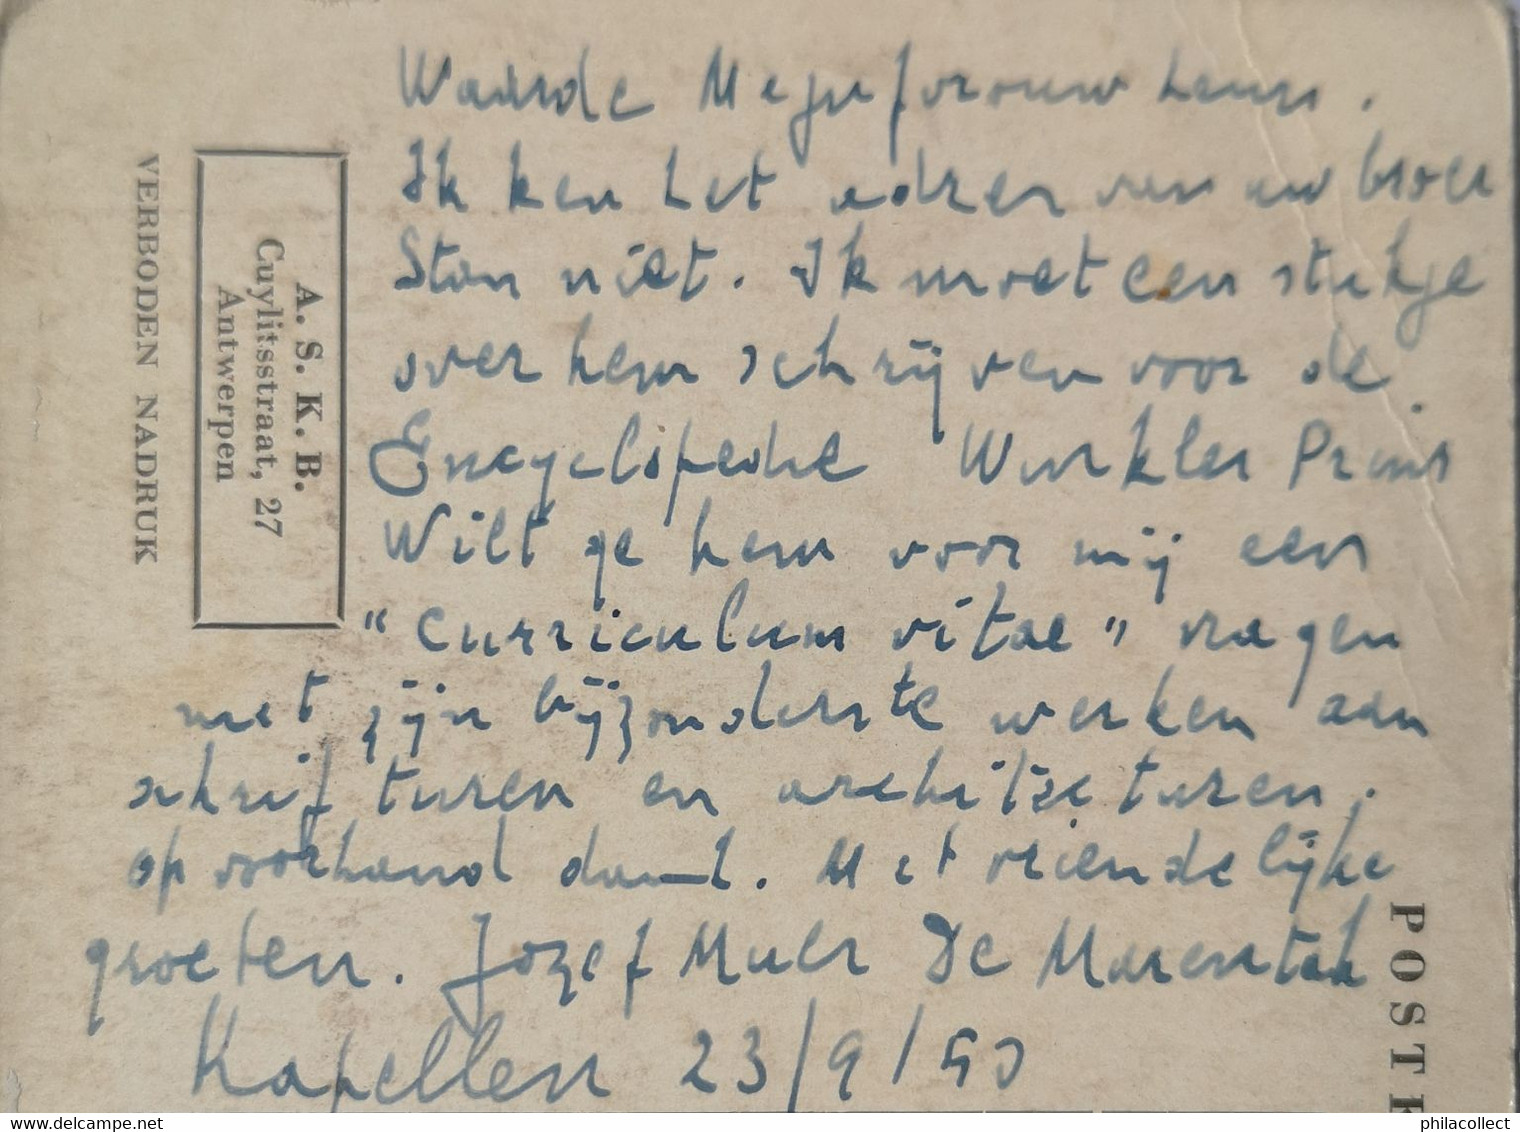 Waarde Mejufvrouw Leurs.
Ik ken het adres van uw broer
Stan niet. Ik moet een stukje
over hem schrijven voor de
Encyclopedie Winkler Prins
Wilt ge hem voor mij een
"curriculum vitae" vragen
met zijn bijzonderste werken aan
schrifturen en architecturen.
op voorhand dank. Met vriendelijke
groeten. Jozef Muls De Marentak
Kapellen 23/9/50
A. S. K. B.
Cuylitsstraat, 27
Antwerpen
VERBODEN NADRUK
POSTK
www.delcampe.net
philacollect